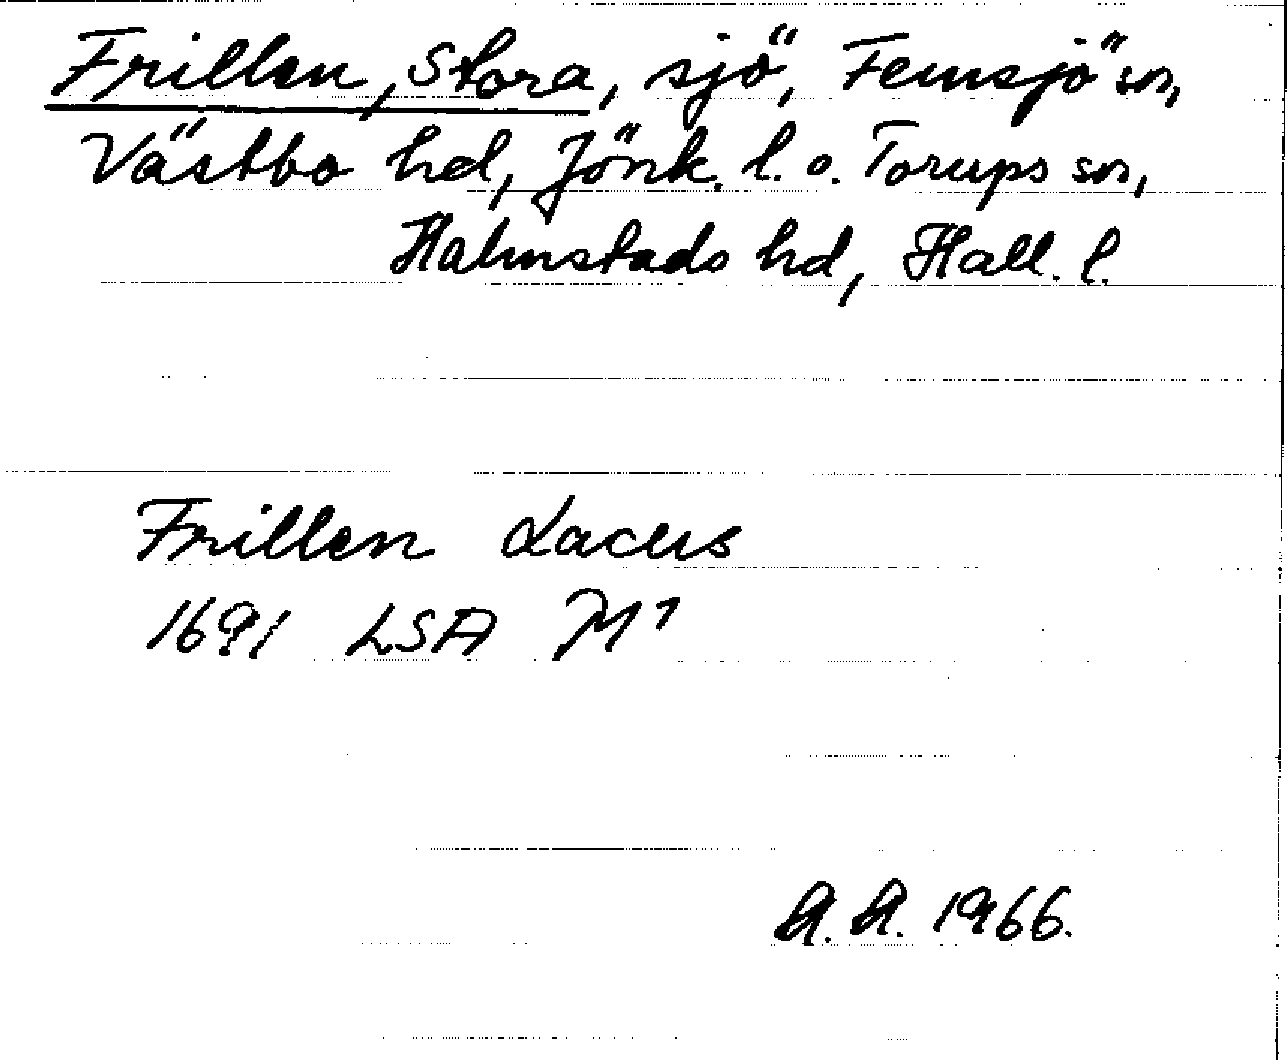 Frillen, Stora, sjö, Femsjö sn,
Västbo hd, Jönk. l. o. Torups sn,
Halmstads hd, Hall. l.
Frillen Lacus
1691 LSA M1
A. A. 1966.